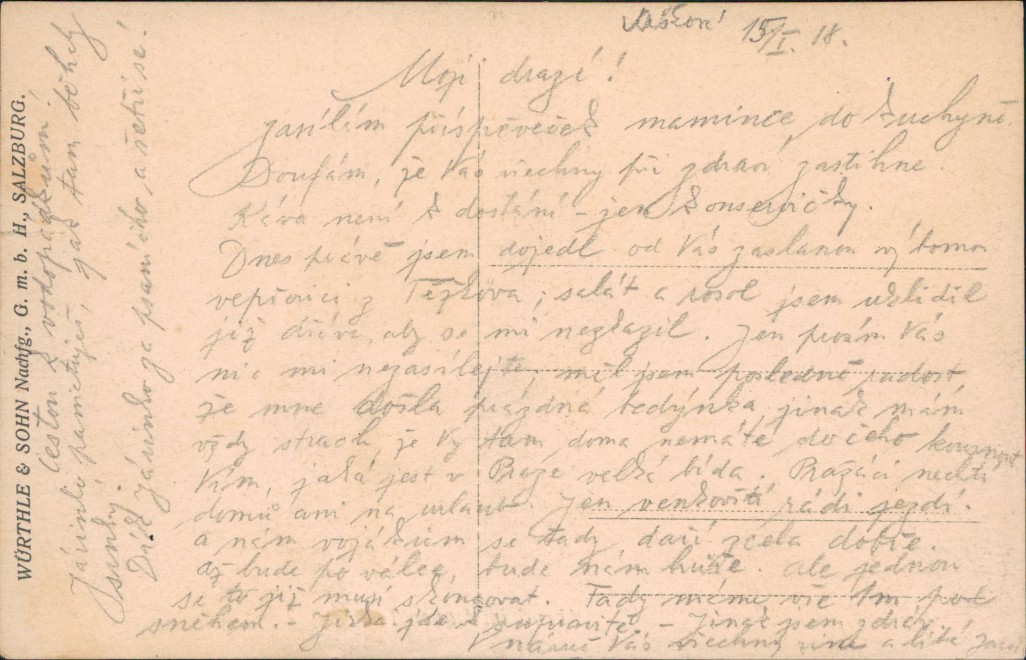 15/I. 18.
Moji drazí!
zasílám příspěveček mamince do kuchyně.
Doufám, že Vás všechny při zdraví zastihne.
Káva není k dostání - jen konservičky.
Dnes právě jsem dojedl od Vás zaslanou výbornou
vepřovici z Těškova; salát a rosol jsem uklidil
již dříve, aby se mi nezkazil. Jen prosím Vás
nic mi nezasílejte, měl jsem posledně radost
že mne došla prázdná bedýnka, jinak mám
vždy strach, že Vy tam doma nemáte do čeho kousnout
Vím, jaká jest v Praze velká bída. Pražáci nechtí
domů ani na urlaub. Jen venkovští rádi jezdí.
a nám vojákům se tady daří zcela dobře.
Až bude po válce, bude nám hůře. ale jednou
se to již musí skoncovat. Tady máme vše 1m pod
sněhem. - jde - Jinak jsem zdráv.
Vás všechny a líbá
cestou k vodopádům,
Járinko pamatuješ, jak tam běhaly
Dík Járinko za psaníčko a šetři se!
WÜRTHLE & SOHN Nachfg., G. m. b. H., SALZBURG.